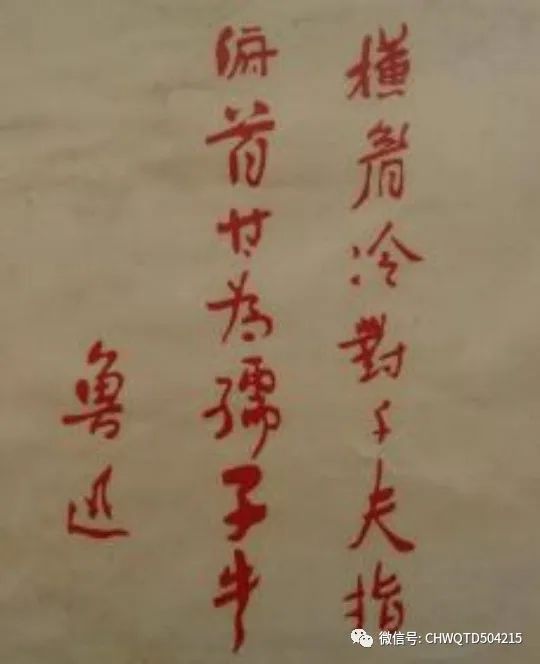 橫眉冷對千夫指
俯首甘為孺子牛
魯迅
微信号: CHWQTD504215